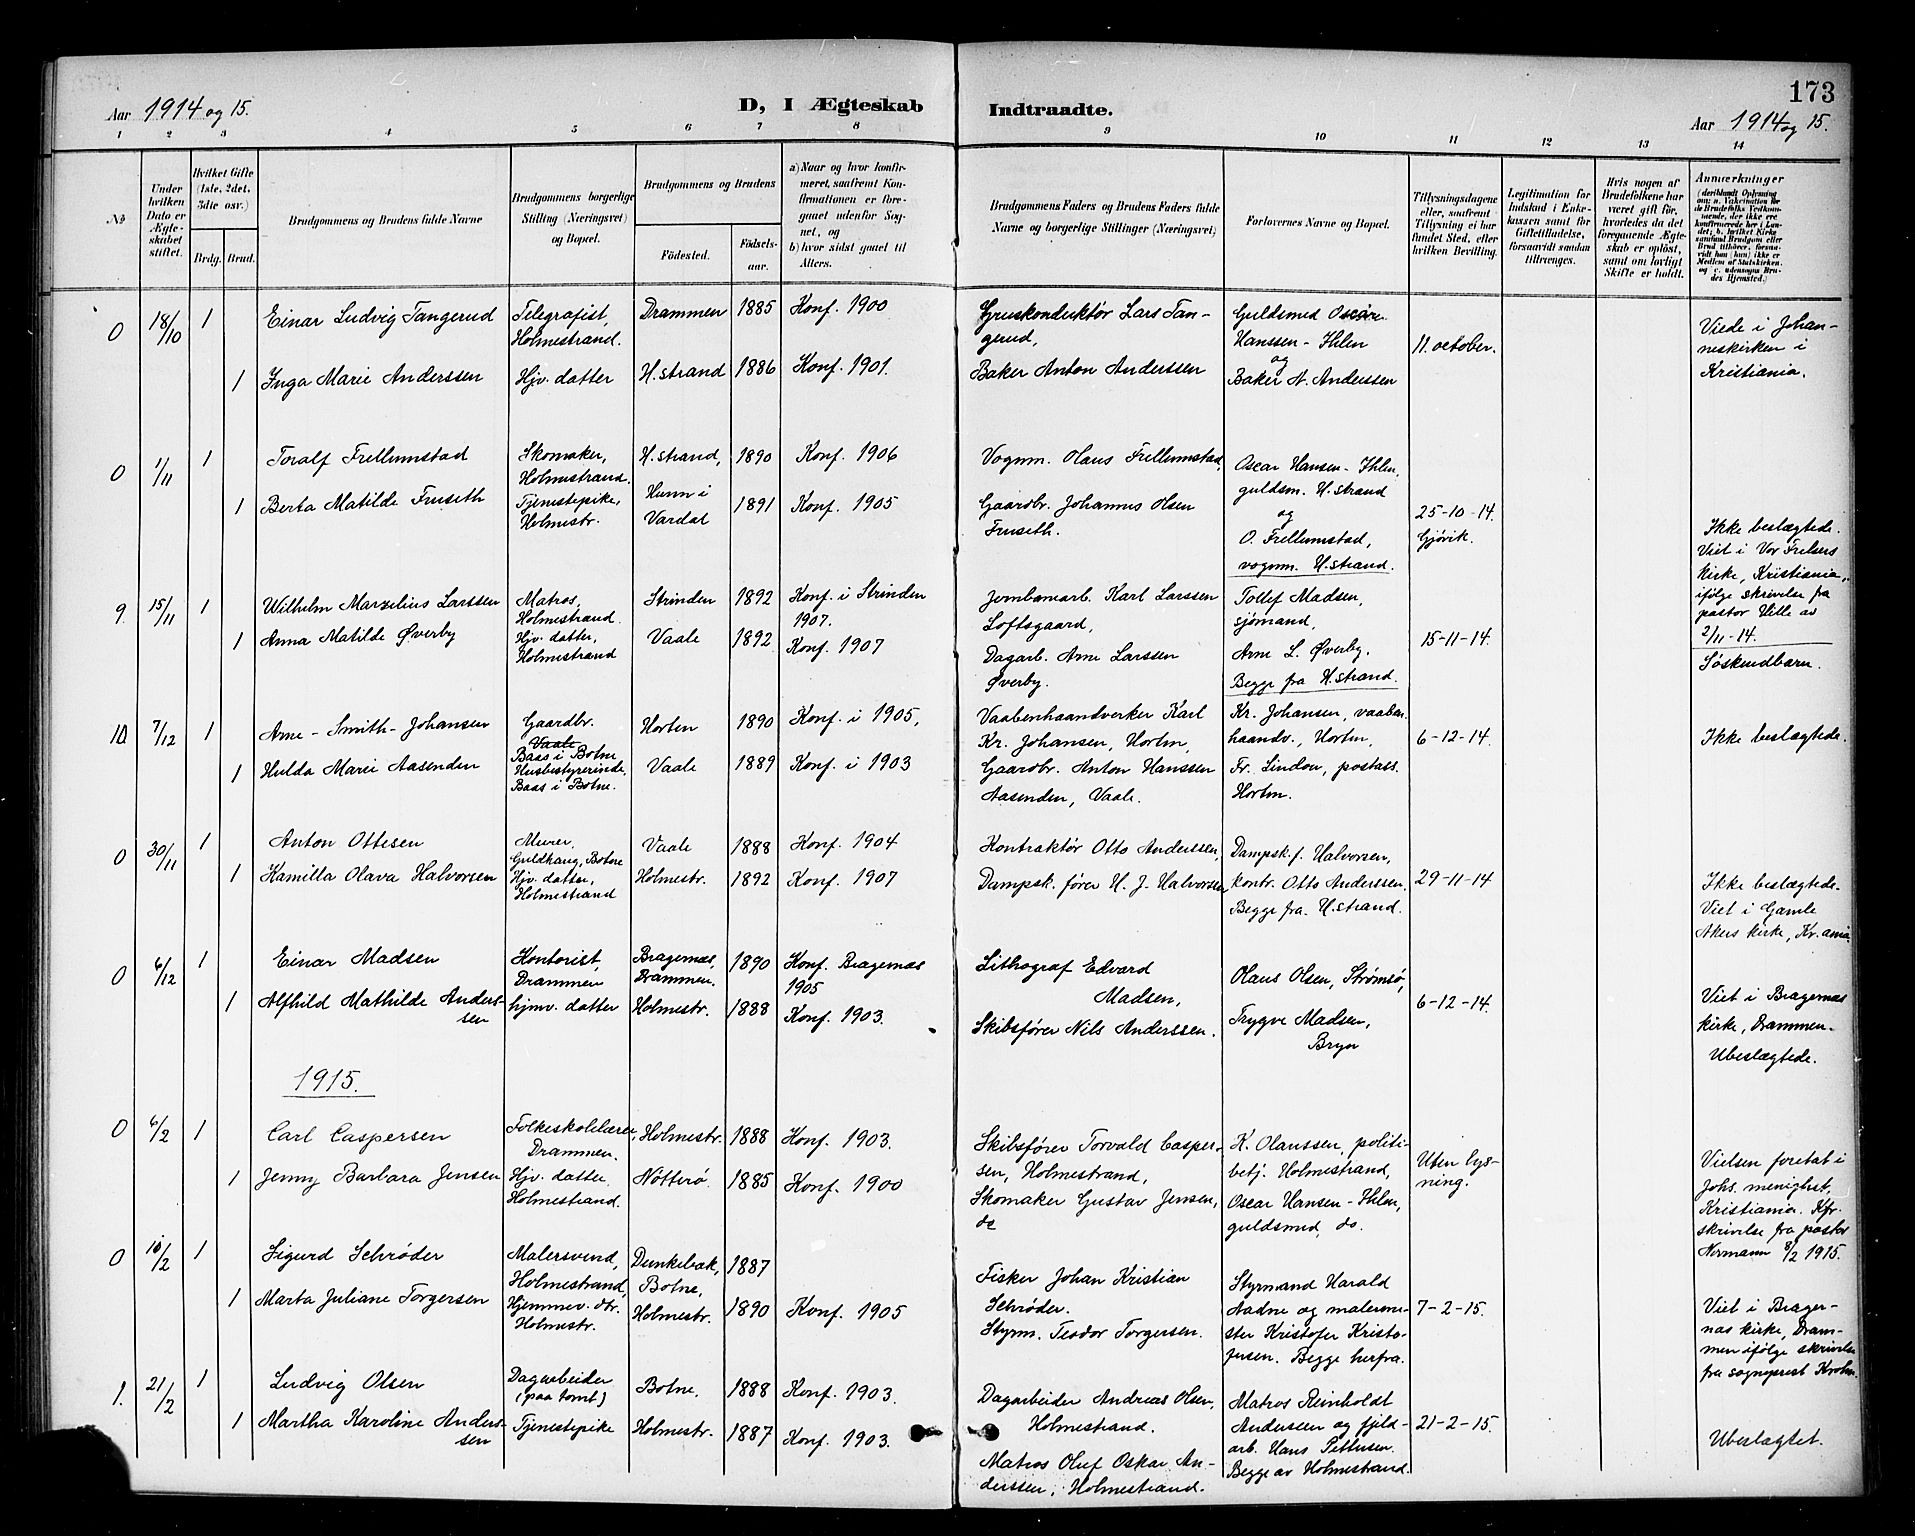 173
Aar 1914 og 15.
D, I Ægteskab Indtraadte.
Aar 1914 og 15.
1 2 3 4 5 6 7 8 9 10 11 12 13 14
No
Under hvilken Dato er Ægteskabet stiftet.
Hvilket Gifte (1ste, 2det, 3die osv.)
Brdg. Brud.
Brudgommens og Brudens fulde Navne
Brudgommens borgerlige Stilling (Næringsvei) og Bopæl.
Brudgommens og Brudens
Födested.
Födselsaar.
a) Naar og hvor konfirmeret, saafremt Konfirmationen er foregaaet udenfor Sognet, og
b) hvor sidst gaaet til Alters.
Brudgommens Faders og Brudens Faders fulde Navne og borgerlige Stillinger (Næringsvei)
Forlovernes Navne og Bopæl.
Tillysningsdagene eller, saafremt Tillysning ei har fundet Sted, efter hvilken Bevilling.
Legitimation for Indskud i Enkekassen samt for Giftetilladelse, forsaavidt saadan tiltrænges.
Hvis nogen af Brudefolkene har været gift før, hvorledes da det foregaaende Ægteskab er oplöst, samt om lovligt Skifte er holdt.
Anmærkninger
0 18/10 1 Einar Ludvig Tangerud Telegrafist, Holmestrand. Drammen 1885 Konf. 1900
1 Inga Marie Anderssen Hjv. datter H.strand 1886 Konf. 1901.
Gruskonduktør Lars Tangerud,
Baker Anton Anderssen
Guldsmed Oscar Hanssen-Ihlen
og
Baker A. Anderssen
11. october.
Viede i Johanneskirken i Kristiania.
0 1/11 1 Toralf Frellumstad Skomaker, Holmestrand. H.strand, 1890 Konf. 1906
1 Berta Matilde Fruseth Tjenestepike, Holmestr. Hunn i Vardal 1891 Konf. 1905
Vognm. Olaus Frellumstad,
Gaardbr. Johannes Olsen Fruseth.
Oscar Hansen-Ihlen, guldsm. H.strand
og
O. Frellumstad, vognm. H.strand.
25-10-14. Gjøvik.
Ikke beslægtede.
Viet i Vor Frelsers kirke, Kristiania, ifølge skrivelse fra pastor Hille av 2/11-14.
9 15/11 1 Wilhelm Marzelius Larssen Matros, Holmestrand. Strinden 1892 Konf. i Strinden 1907.
1 Anna Matilde Øverby Hjv. datter, Holmestrand Vaale 1892 Konf. 1907
Jernbanearb. Karl Larssen Loftsgaard,
Dagarb. Arne Larssen Øverby.
Tollef Madsen, sjømand,
Arne L. Øverby.
Begge fra H.strand.
15-11-14.
Søskendbarn.
10 7/12 1 Arne-Smith-Johansen Gaardbr. Vaale Baas i Botne Horten 1890 Konf. i 1905,
1 Hulda Marie Aasenden Husbestyrerinde, Baas i Botne. Vaale 1889 Konf. i 1903
Vaabenhaandverker Karl Kr. Johansen, Horten,
Gaardbr. Anton Hanssen Aasenden, Vaale.
Kr. Johansen, vaabenhaandv., Horten,
Fr. Lindou, postass. Horten.
6-12-14.
Ikke beslægtede.
0 30/11 1 Anton Ottesen Murer, Guldhaug, Botne Vaale 1888 Konf. 1904
1 Kamilla Olava Halvorsen Hjv. datter, Holmestrand Holmestr. 1892 Konf. 1907
Kontraktør Otto Anderssen,
Dampsk. fører H. J. Halvorsen,
Dampsk. f. Halvorsen,
kontr. Otto Anderssen.
Begge fra H.strand.
29-11-14
Ikke beslægtede.
Viet i Gamle Akers kirke, Kr.ania.
0 6/12 1 Einar Madsen Kontorist, Drammen Bragernæs, Drammen. 1890 Konf. Bragernæs 1905
1 Alfhild Mathilde Anderssen hjmv. datter Holmestr. 1888 Konf. 1903.
Lithograf Edvard Madsen,
Skibsfører Nils Anderssen.
Olaus Olsen, Strømsø,
Trygve Madsen, Bryn
6-12-14.
Viet i Bragernæs kirke, Drammen.
Ubeslægtede.
1915.
0 6/2 1 Carl Caspersen Folkeskolelærer, Drammen. Holmestr. 1888 Konf. 1903.
1 Jenny Barbara Jensen Hjv. datter, Holmestrand. Nötterö. 1885 Konf. 1900
Skibsfører Torvald Caspersen, Holmestrand,
Skomaker Gustav Jensen, do
K. Olanssen, politibetj. Holmestrand,
Oscar Hansen-Ihlen, guldsmed, do.
Uten lysning.
Vielsen foretat i Johs. menighet, Kristiania. Kfr. skrivelse fra pastor Normann 8/2 1915.
0 10/2 1 Sigurd Schrøder Malersvend, Holmestrand, Dunkebæk, Botne, 1887
1 Marta Juliane Torgersen Hjemmev. dtr. Holmestr. Holmestr. 1890 Konf. 1905
Fisker Johan Kristian Schrøder.
Styrm. Teodor Torgersen.
Styrmand Harald Aadne og malermester Kristofer Kristofersen. Begge herfra.
7-2-15.
Viet i Bragernæs kirke, Drammen ifølge skrivelse fra sogneprest Krohn.
1. 21/2 1 Ludvig Olsen Dagarbeider (paa tomt) Botne, 1888 Konf. 1903.
1 Martha Karoline Anderssen Tjenestepike Holmestr. 1887 Konf. 1903.
Dagarbeider Andreas Olsen, Holmestrand.
Matros Oluf Oskar Anderssen, Holmestrand.
Matros Reinholdt Anderssen og fjeldarb. Hans Pettersen. Begge av Holmestrand.
21-2-15.
Ubeslægtet.